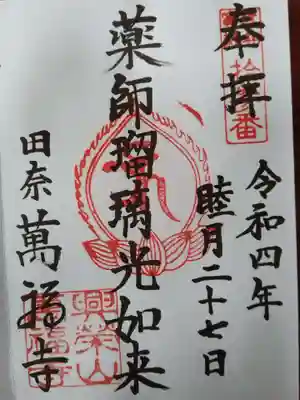 奉拝
令和四年
睦月二十七日
薬師瑠璃光如来
田奈萬福寺